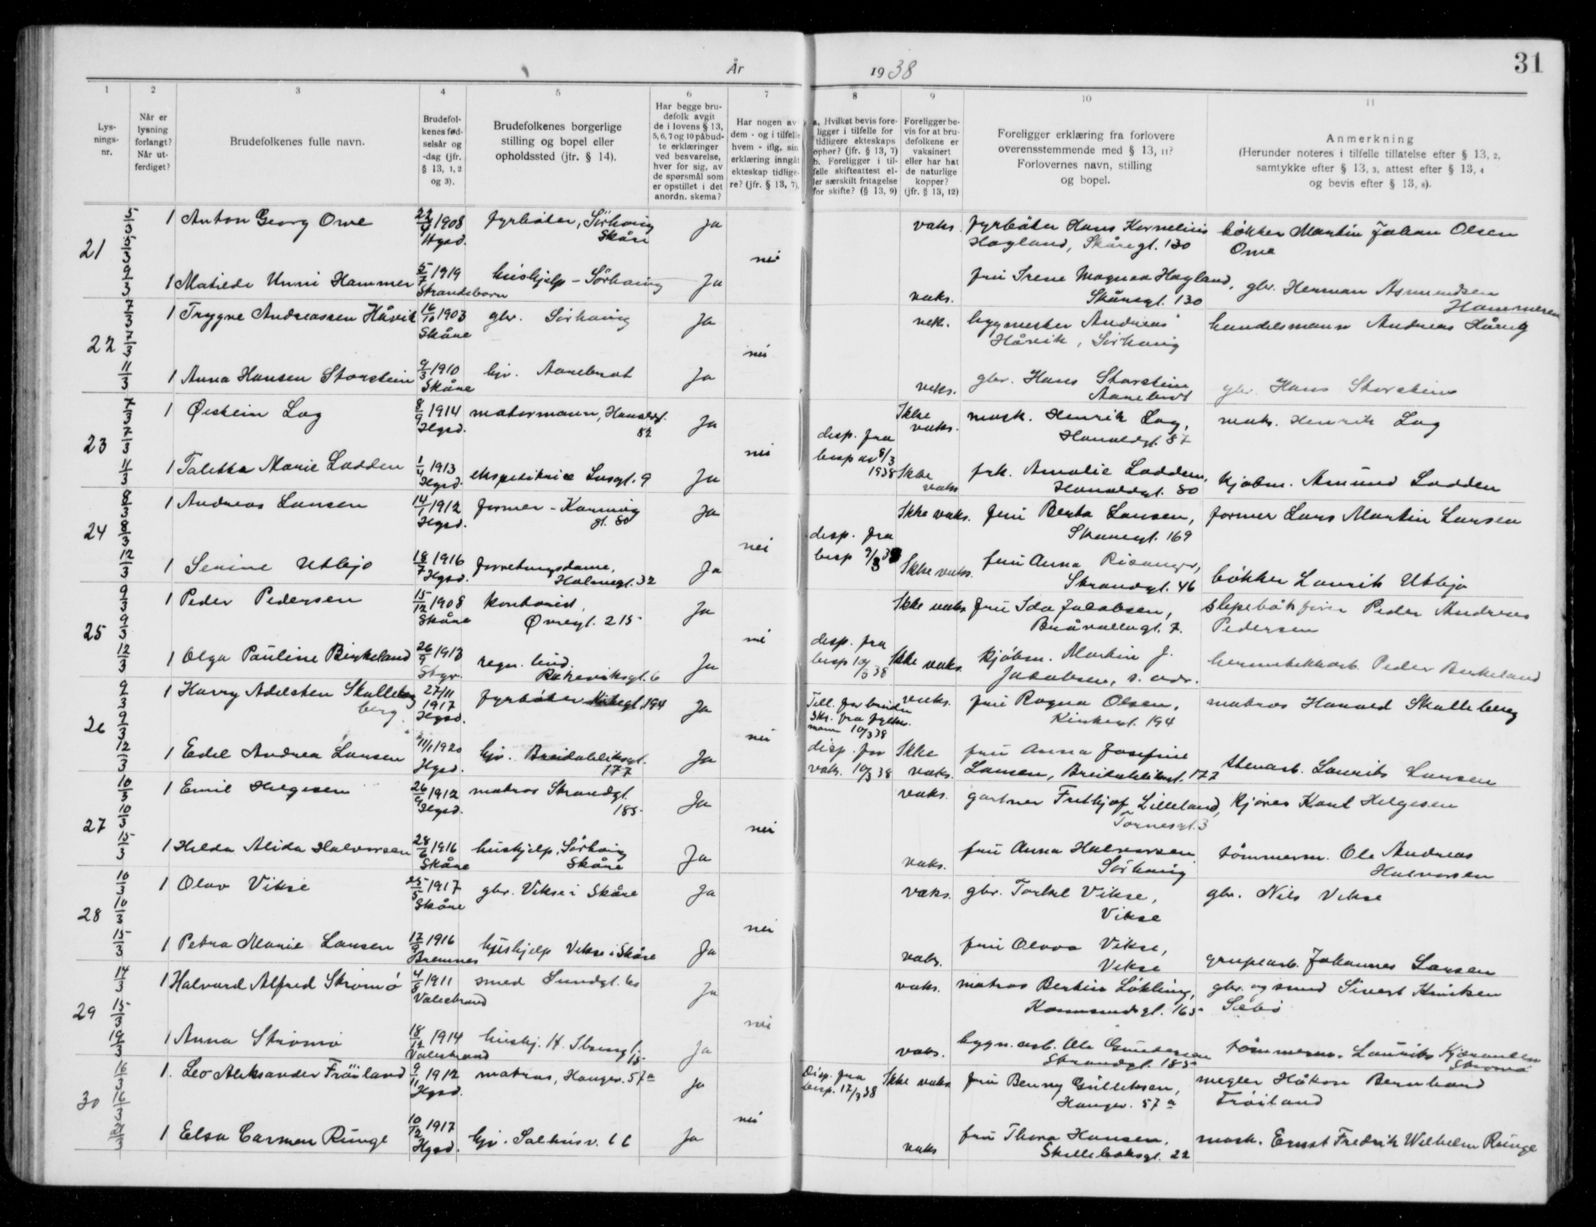 År 1938
31
1 2 3 4 5 6 7 8 9 10 11
Lys-
nings-
nr.
Når er
lysning
forlangt?
Når ut-
ferdiget?
Brudefolkenes fulle navn.
Brudefol-
kenes fød-
selsår og
-dag (jfr.
§ 13, 1, 2
og 3).
Brudefolkenes borgerlige
stilling og bopel eller
opholdssted (jfr. § 14).
Har begge bru-
defolk avgit
de i lovens § 13,
5, 6, 7 og 10 påbud-
te erklæringer
ved besvarelse,
hver for sig, av
de spørsmål som
er opstillet i det
anordn. skema?
Har nogen av
dem - og i tilfelle
hvem - iflg. sin
erklæring inngått
ekteskap tidlige-
re? (jfr. § 13, 7).
a. Hvilket bevis fore-
ligger i tilfelle for
tidligere ekteskaps
ophør? (jfr. § 13, 7)
b. Foreligger i til-
felle skifteattest el-
ler særskilt fritagelse
for skifte? (§ 13, 9)
Foreligger be-
vis for at bru-
defolkene er
vaksinert
eller har hat
de naturlige
kopper?
(jfr. § 13, 12)
Foreligger erklæring fra forlovere
overensstemmende med § 13, 11?
Forlovernes navn, stilling
og bopel.
Anmerkning
(Herunder noteres i tilfelle tillatelse efter § 13, 2,
samtykke efter § 13, 3, attest efter § 13, 4
og bevis efter § 13, 8).
21 5/3 5/3 9/3
1 Anton Georg Orne 1908 Hgsd. fyrbøter, Sørhaug Skåre Ja vaks. fyrbøter Hans Kornelius Hagland, Skåregt. 130 bøkker Martin Johan Olsen Orne
nei
1 Matilde Unni Hammer 1919 Strandebarm hushjelp - Sørhaug Ja vaks. fru Irene Magnea Hagland, Skåregt. 130 gbr. Herman Asmundsen Hammersen
22 7/3 7/3 11/3
1 Trygve Andreassen Håvik 16/10 1903 Skåre gbr. Sørhaug Ja vak. bygmester Andreas Håvik, Sørhaug handelsmann Andreas Håvik
nei
1 Anna Hansen Storstein 9/3 1910 Skåre hjv. Aanebrot Ja vaks. gbr. Hans Storstein Aanebrot gbr. Hans Storstein
23 7/3 7/3 11/3
1 Øistein Log 8/9 1914 Hgsd. motormann, Haraldsgt. 82 Ja Ikke vaks. mask. Henrik Log, Haraldgt. 87 mask. Henrik Log
nei disp. fra besp av 8/3 1938
1 Taletta Marie Lodden 1/4 1913 Hgsd. ekspeditrice Ja Ikke vaks frk. Amalie Lodden, Haraldgt. 80 kjøbm. Amund Lodden
24 8/3 8/3 12/3
1 Andreas Larsen 14/1 1912 Hgsd. former - Karmøy gt. 80 Ja Ikke vaks. fru Berta Larsen, Skåregt. 169 former Lars Martin Larsen
nei disp. fra besp 9/3 38
1 Serine Utbjo 18/7 1916 Hgsd. forretningsdame, Holmegt. 32 Ja Ikke vaks. fru Anna Risanger, Strandgt. 46 bøkker Laurits Utbjo
25 9/3 9/3 12/3
1 Peder Pedersen 15/12 1908 Skåre kontorist, Øvregt. 215 Ja Ikke vaks fru Ida Jacobsen, Bråvallagt. 7. slepebåtfører Peder Andreas Pedersen
nei disp. fra besp 10/3 38
1 Olga Pauline Birkeland 26/9 1913 regn. Ja Ikke vaks. kjøbm. Martin J. Jacobsen, s. adr. hermetikkarb. Peder Birkeland
26 9/3 9/3 12/3
1 Harry Adelsten Skalleberg 27/11 1917 Hgsd. fyrbøter Kirkegt. 194 Ja Till. for bruden fra fylkesmann 10/3 38 vaks. fru Ragna Olsen, Kirkegt. 194 matros Harald Skalleberg
nei
1 Edel Andrea Larsen 1920 Hgsd. hjv. Breidablikgt. 177 Ja disp. for vaks. 10/3 38 Ikke vaks. fru Anna Josefine Larsen, Breidablikgt. 177 stenarb. Laurits Larsen
27 10/3 10/3 15/3
1 Emil Helgesen 26/9 1912 Hgsd. matros Strandgt. 185 Ja vaks. gartner Fritjof Lilleland, Tornesgt. 3 kjøres Karl Helgesen
nei
1 Hilda Alida Halvorsen 28/6 1916 Skåre hushjelp, Sørhaug Skåre Ja vaks. fru Anna Halvorsen Sørhaug tømmerm. Ole Andreas Halvorsen
28 10/3 10/3 15/3
1 Olav Vikse 25/5 1917 Skåre gbr. Vikse i Skåre Ja vaks. gbr. Torkel Vikse, Vikse gbr. Nils Vikse
nei
1 Petra Marie Larsen 17/9 1916 Bremnes hushjelp Vikse i Skåre Ja vaks. fru Olava Vikse, Vikse grubearb. Johannes Larsen
29 14/3 15/3 19/3
1 Halvard Alfred Strømø 4/8 1911 Valestrand smed Sundgt. 60 Ja vaks. matros Bertin Løkling, Karmsundgt. 165 gbr. og smed Sivert Knutsen Sæbø
nei
1 Anna Strømø 18/12 1914 Valestrand hushj. H. Ibsensgt. 15 Ja vaks. bygn.arb. Ole Gundersen Strandgt. 185 tømmerm. Laurits Strømø
30 16/3 16/3 21/3
1. Leo Aleksander Frøiland 9/11 1912 Hgsd. matros, Haugev. 57a Ja Disp. fra besp. 17/3 38 Ikke vaks fru Benny Gulleksen, Haugev. 57a megler Håkon Bernhard Frøiland
nei
1 Elsa Carmen Runge 10/12 1917 Hgsd. hjv. Salhusv. 66 Ja vaks fru Thora Hansen, Skillebeksgt. 22 mask. Ernst Fredrik Wilhelm Runge